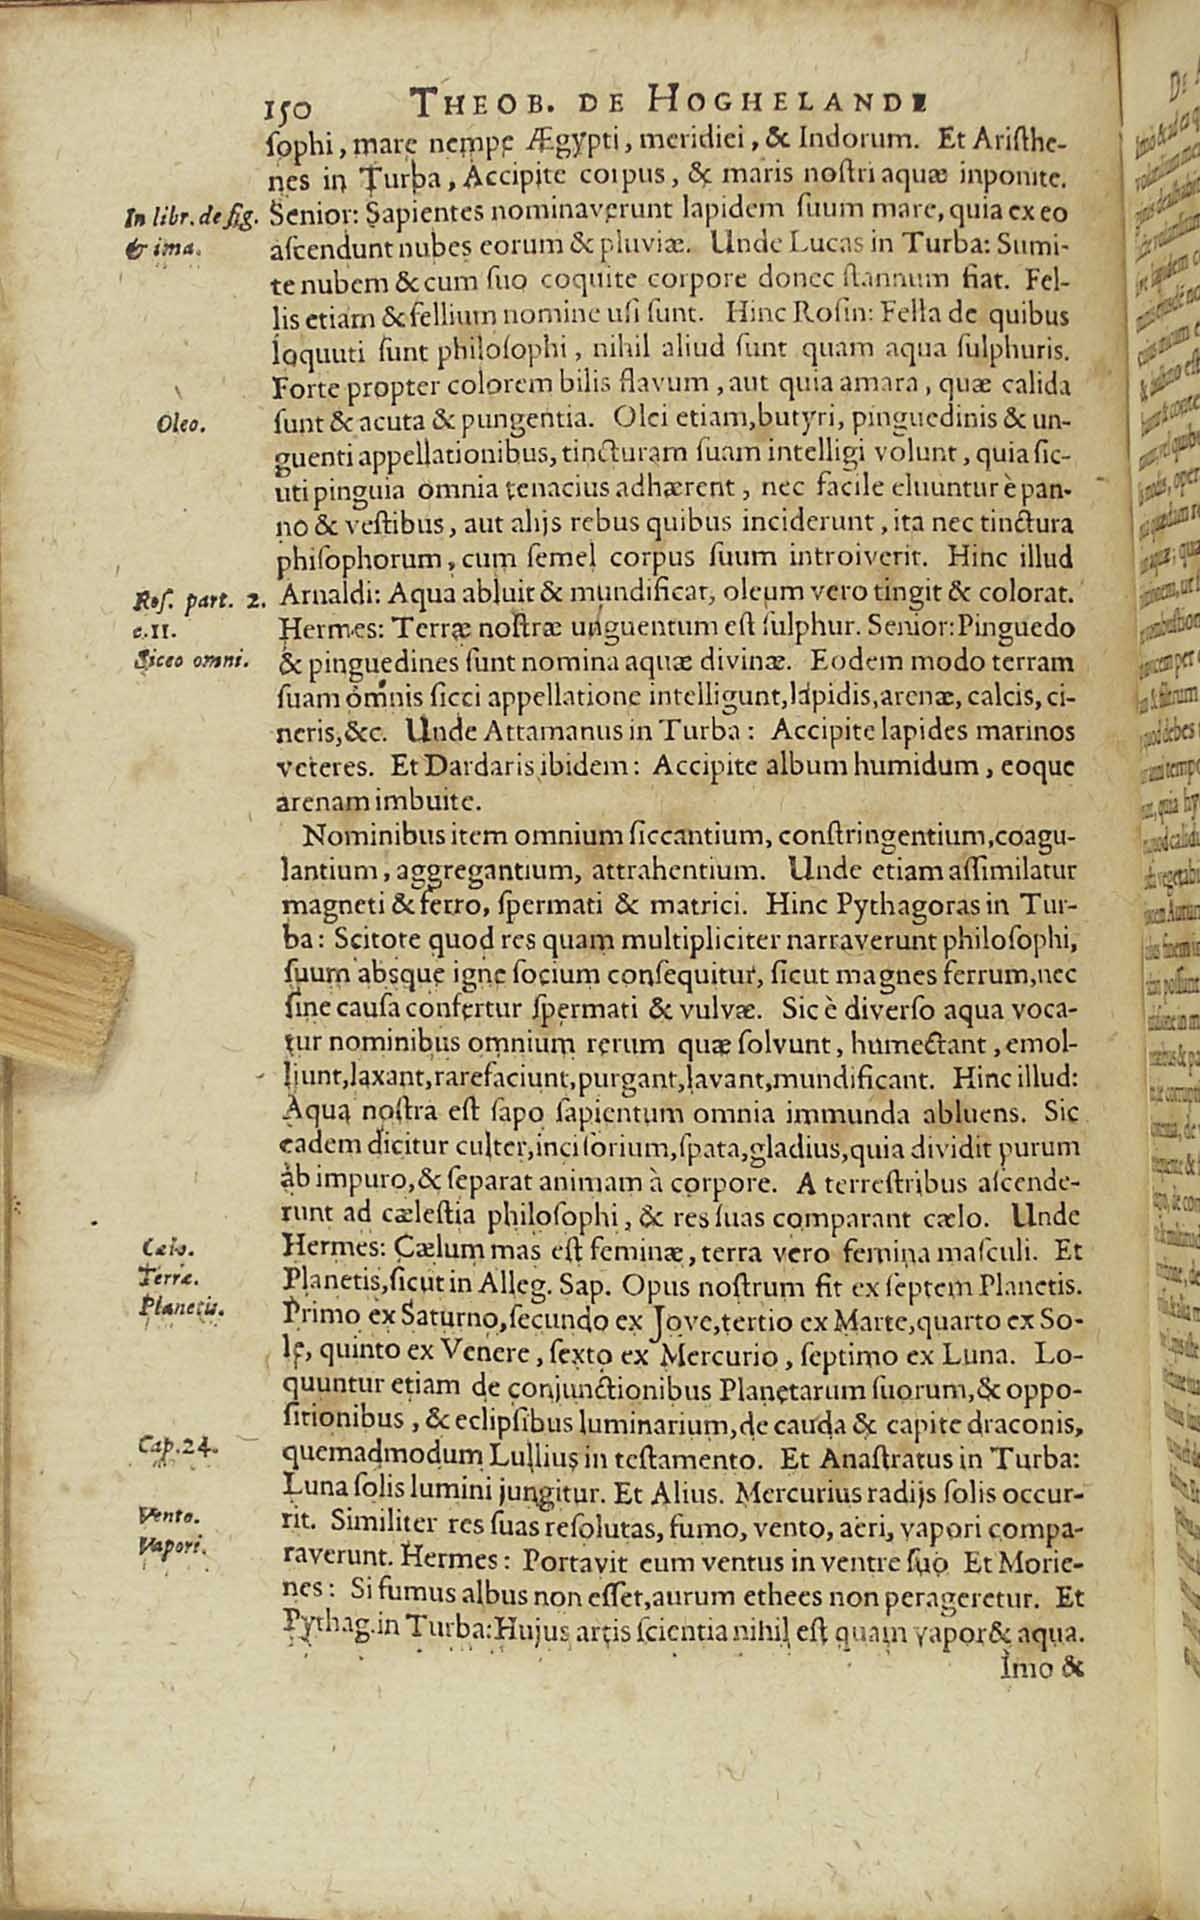 150 THEOB. DE HOGHELANDE
sophi, mare nempe Ægypti, meridiei, & Indorum. Et Aristhe-
nes in Turba, Accipite corpus, & maris nostri aquæ inponite.
In libr. de fig. Senior: Sapientes nominaverunt lapidem suum mare, quia ex eo
& ima. ascendunt nubes eorum & pluviæ. Unde Lucas in Turba: Sumi-
te nubem & cum suo coquite corpore donec stannum fiat. Fel-
lis etiam & fellium nomine usi sunt. Hinc Rosin: Fella de quibus
loquuti sunt philosophi, nihil aliud sunt quam aqua sulphuris.
Forte propter colorem bilis flavum, aut quia amara, quæ calida
Oleo. sunt & acuta & pungentia. Olei etiam, butyri, pinguedinis & un-
guenti appellationibus, tincturam suam intelligi volunt, quia sic-
uti pinguia omnia tenacius adhærent, nec facile eluuntur è pan-
no & vestibus, aut alijs rebus quibus inciderunt, ita nec tinctura
phisophorum, cum semel corpus suum introiverit. Hinc illud
Ros. part. 2. Arnaldi: Aqua abluit & mundificat, oleum vero tingit & colorat.
c.11. Hermes: Terræ nostræ unguentum est sulphur. Senior: Pinguedo
Sicco omni. & pinguedines sunt nomina aquæ divinæ. Eodem modo terram
suam omnis sicci appellatione intelligunt, lapidis, arenæ, calcis, ci-
neris, &c. Unde Attamanus in Turba: Accipite lapides marinos
veteres. Et Dardaris ibidem: Accipite album humidum, eoque
arenam imbuite.
Nominibus item omnium siccantium, constringentium, coagu-
lantium, aggregantium, attrahentium. Unde etiam assimilatur
magneti & ferro, spermati & matrici. Hinc Pythagoras in Tur-
ba: Scitote quod res quam multipliciter narraverunt philosophi,
suum absque igne socium consequitur, sicut magnes ferrum, nec
sine causa confertur spermati & vulvæ. Sic è diverso aqua voca-
tur nominibus omnium rerum quæ solvunt, humectant, emol-
liunt, laxant, rarefaciunt, purgant, lavant, mundificant. Hinc illud:
Aqua nostra est sapo sapientum omnia immunda abluens. Sic
eadem dicitur culter, incisorium, spata, gladius, quia dividit purum
ab impuro, & separat animam à corpore. A terrestribus ascende-
runt ad cælestia philosophi, & res suas comparant cælo. Unde
Cælo. Hermes: Cælum mas est feminæ, terra vero femina masculi. Et
Terræ. Planetis, sicut in Alleg. Sap. Opus nostrum fit ex septem Planetis.
Planetis. Primo ex Saturno, secundo ex Jove, tertio ex Marte, quarto ex So-
le, quinto ex Venere, sexto ex Mercurio, septimo ex Luna. Lo-
quuntur etiam de conjunctionibus Planetarum suorum, & oppo-
sitionibus, & eclipsibus luminarium, de cauda & capite draconis,
Cap. 24. quemadmodum Lullius in testamento. Et Anastratus in Turba:
Luna solis lumini jungitur. Et Alius. Mercurius radijs solis occur-
Vento. rit. Similiter res suas resolutas, fumo, vento, aëri, vapori compa-
Vapori. raverunt. Hermes: Portavit eum ventus in ventre suo. Et Morie-
nes: Si fumus albus non esset, aurum ethees non perageretur. Et
Pythag. in Turba: Hujus artis scientia nihil est quam vapor & aqua.
Imo &